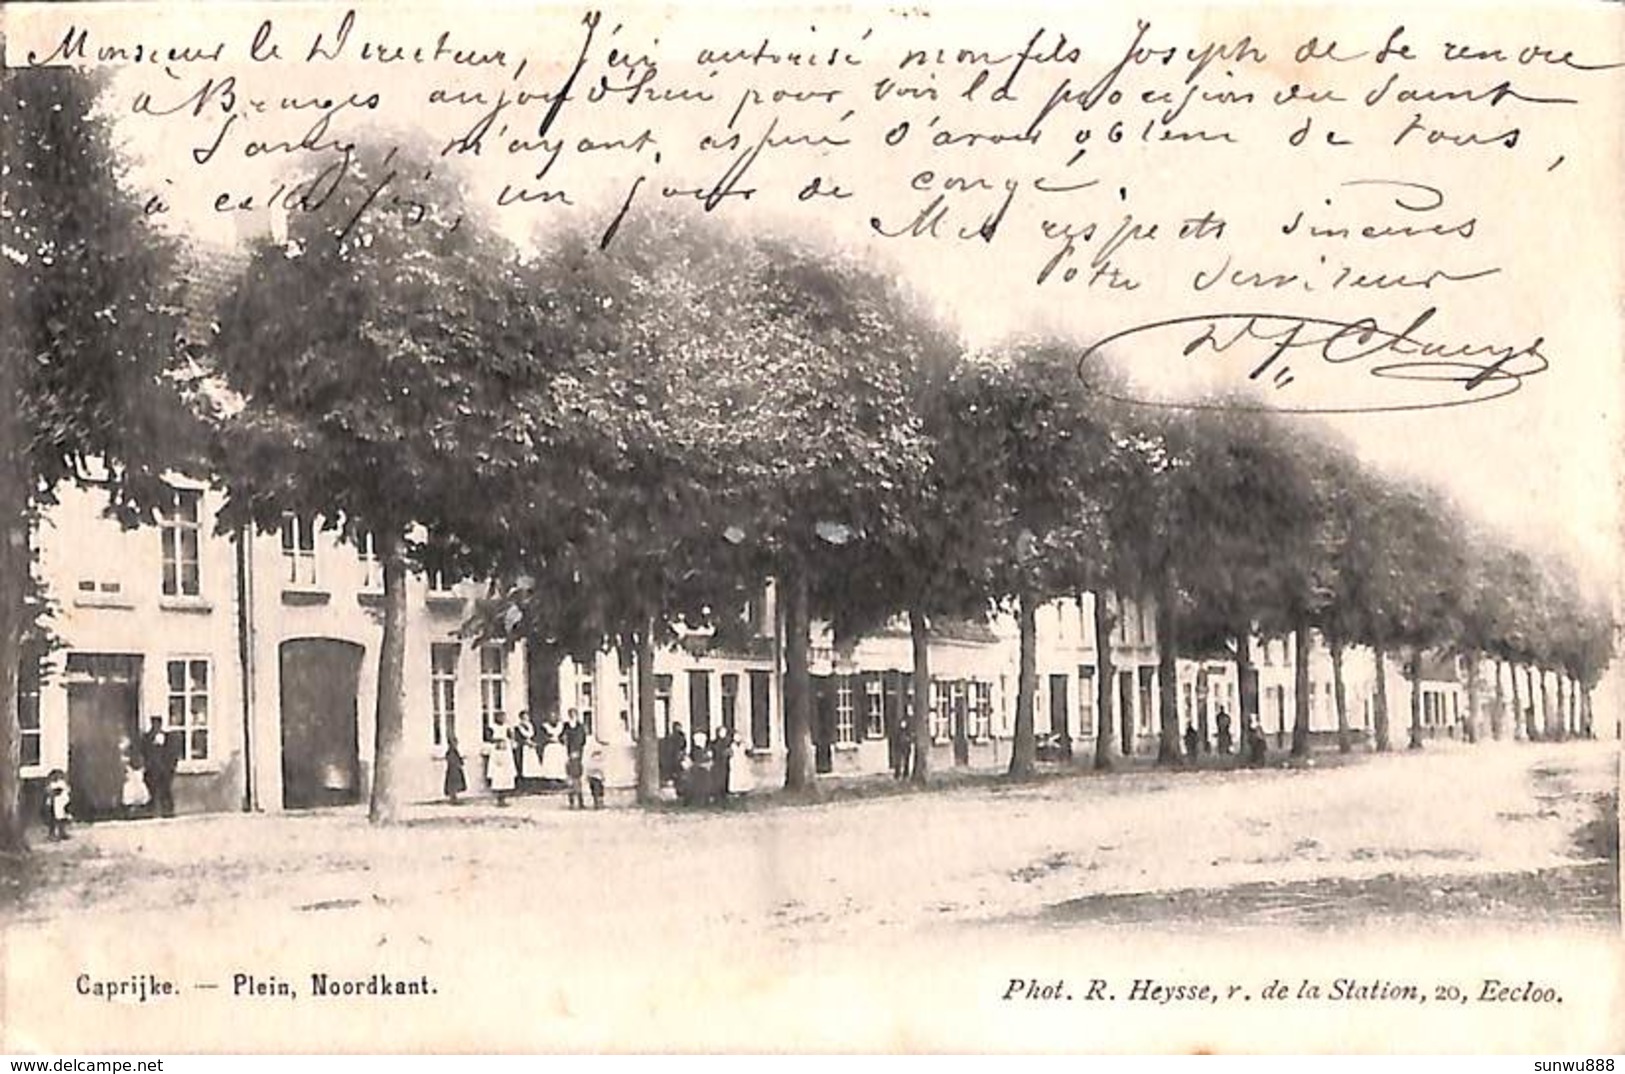 Monsieur le Directeur, J'ai autorisé mon fils Joseph de se rendre
à Bruges aujourd'hui pour voir la procession du Saint
Sang, m'ayant, espéré d'avoir obtenu de vous,
à cette fin, un jour de congé.
Mes respects sincères
Votre serviteur
Claeys
Caprijke. — Plein, Noordkant.
Phot. R. Heysse, r. de la Station, 20, Eecloo.
sunwu888